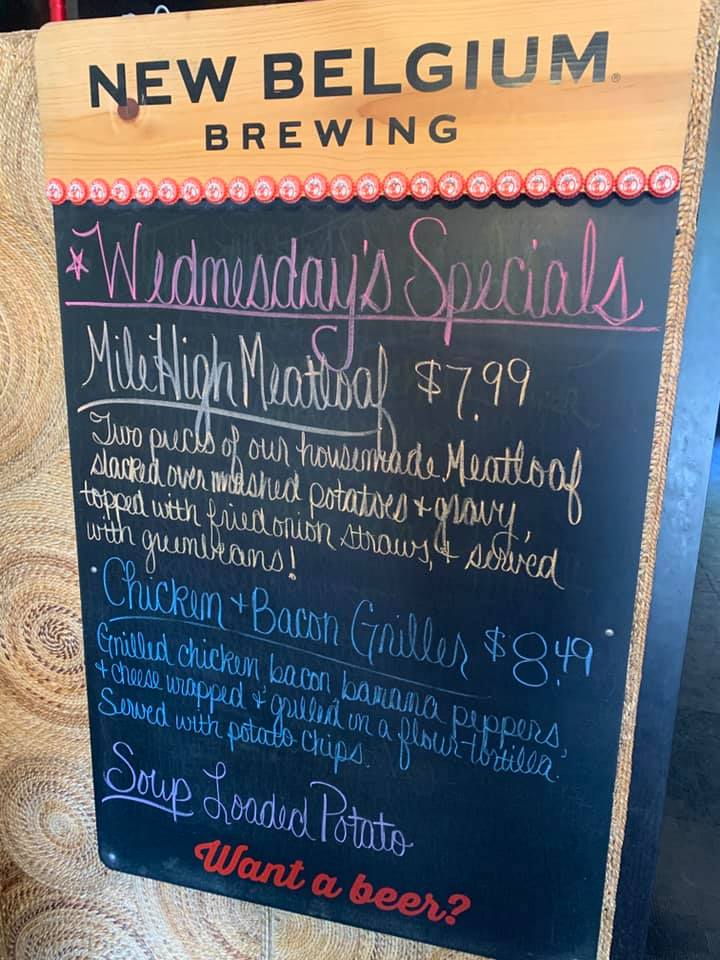 NEW BELGIUM®
BREWING
Wednesday's Specials
Mile High Meatloaf $7.99
Two pieces of our housemade Meatloaf
stacked over mashed potatoes + gravy,
topped with fried onion straws, + served
with greenbeans!
Chicken + Bacon Griller $8.49
Grilled chicken bacon banana peppers,
+ cheese wrapped + grilled in a flour tortilla.
Served with potato chips.
Soup Loaded Potato
Want a beer?